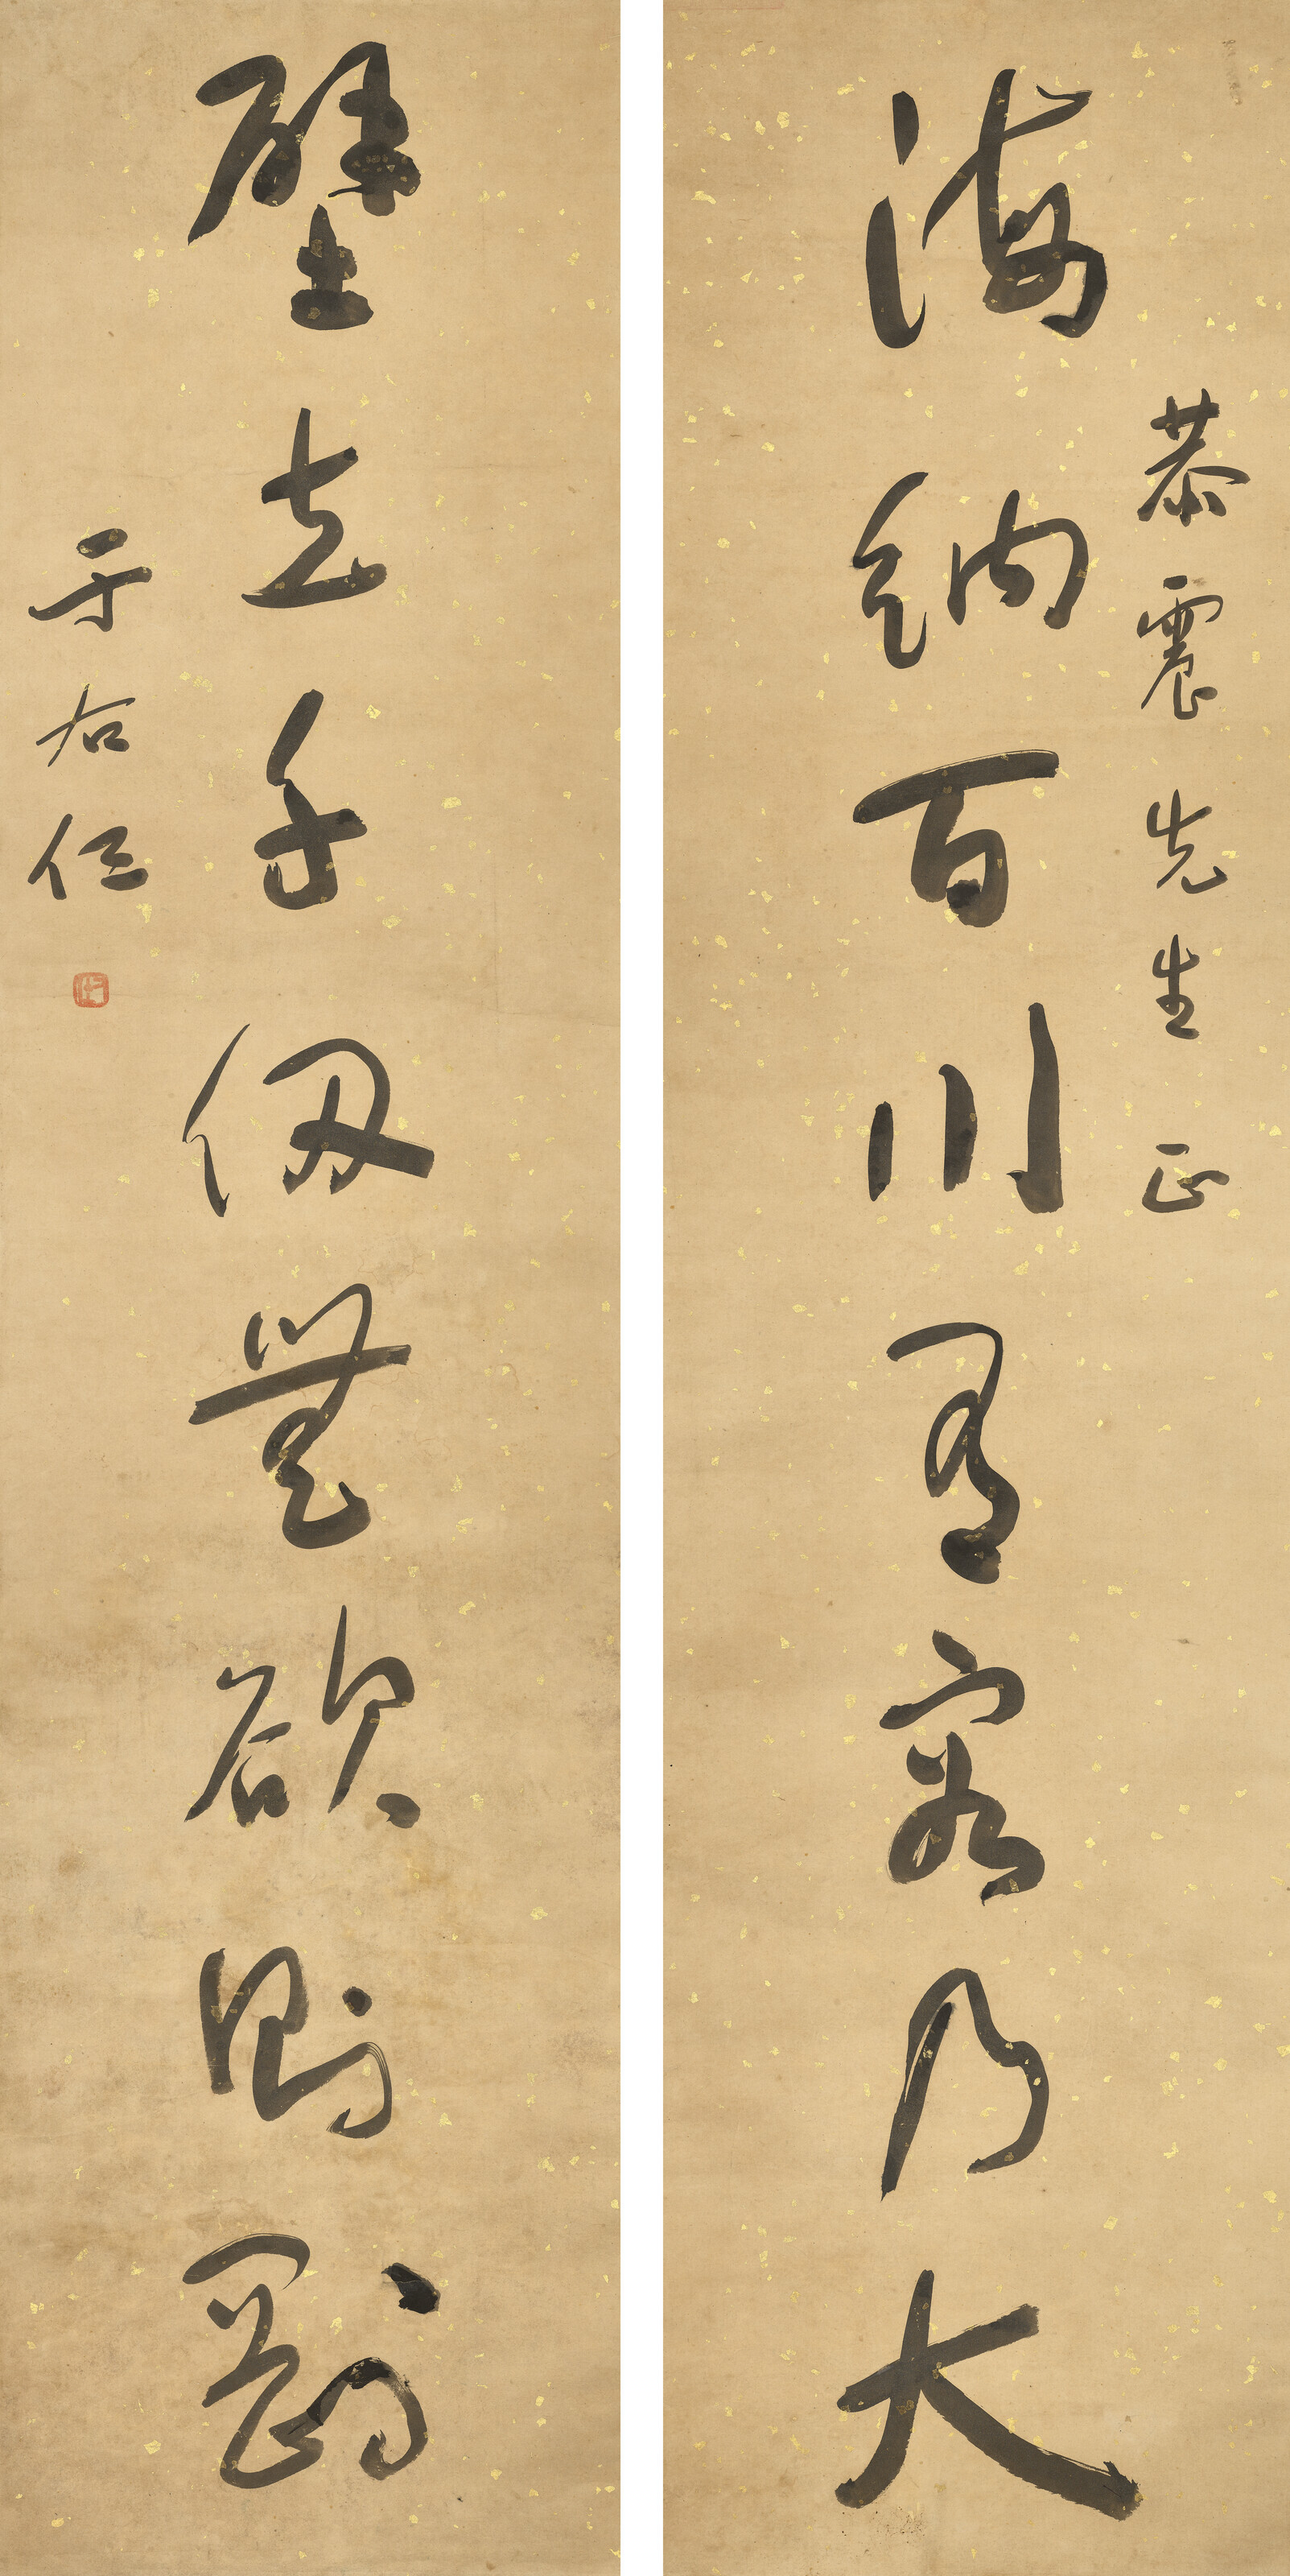 恭震先生正
海納百川有容乃大
壁立千仞無欲則剛
于右任